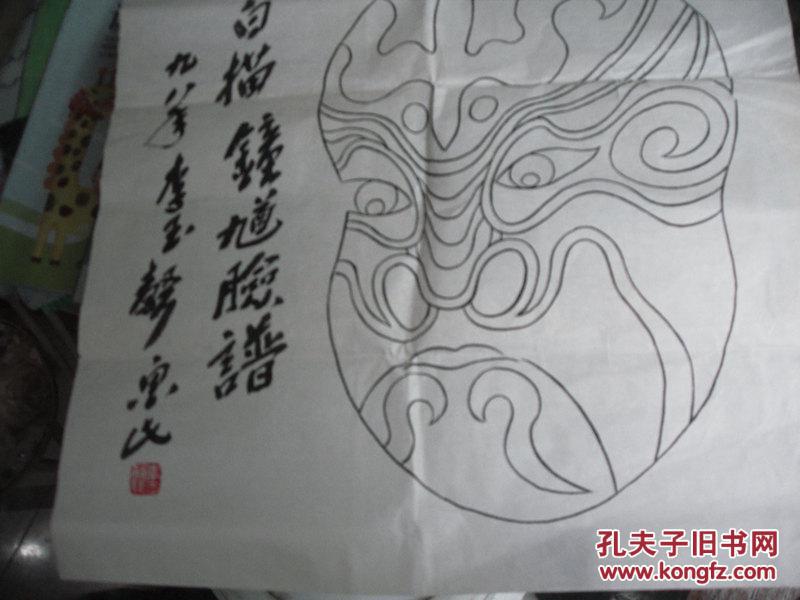 白描鐘馗臉譜
九八年李玉声
孔夫子旧书网
www.kongfz.com